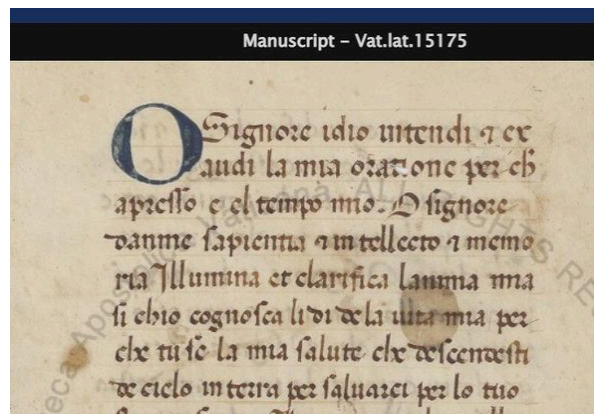 Manuscript – Vat.lat.15175
O Signore idio intendi ⁊ ex
audi la mia oratione per ch
apresso e el tempo mio. O signore
damme sapientia ⁊ intellecto ⁊ memo
ria Illumina et clarifica lanima mia
si chio cognosca li di de la uita mia per
che tu se la mia salute che descendesti
de cielo in terra per saluarci per lo tuo